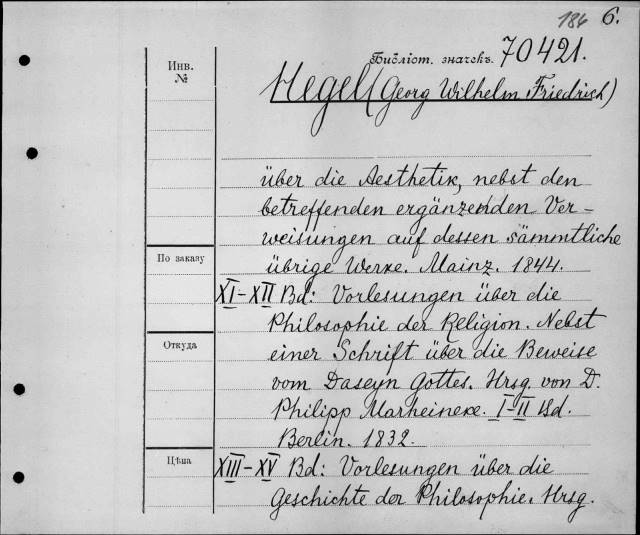 186 6.
Инв. №
Библіот. значекъ. 70421.
Hegel (Georg Wilhelm Friedrich)
über die Aesthetik, nebst den
betreffenden ergänzenden Ver-
weisungen auf dessen sämmtliche
По заказу
übrige Werke. Mainz. 1844.
XI-XII Bd: Vorlesungen über die
Philosophie der Religion. Nebst
Откуда
einer Schrift über die Beweise
vom Daseyn Gottes. Hrsg. von D.
Philipp Marheineke. I-II Bd.
Berlin. 1832.
Цѣна
XIII-XV Bd: Vorlesungen über die
Geschichte der Philosophie. Hrsg.